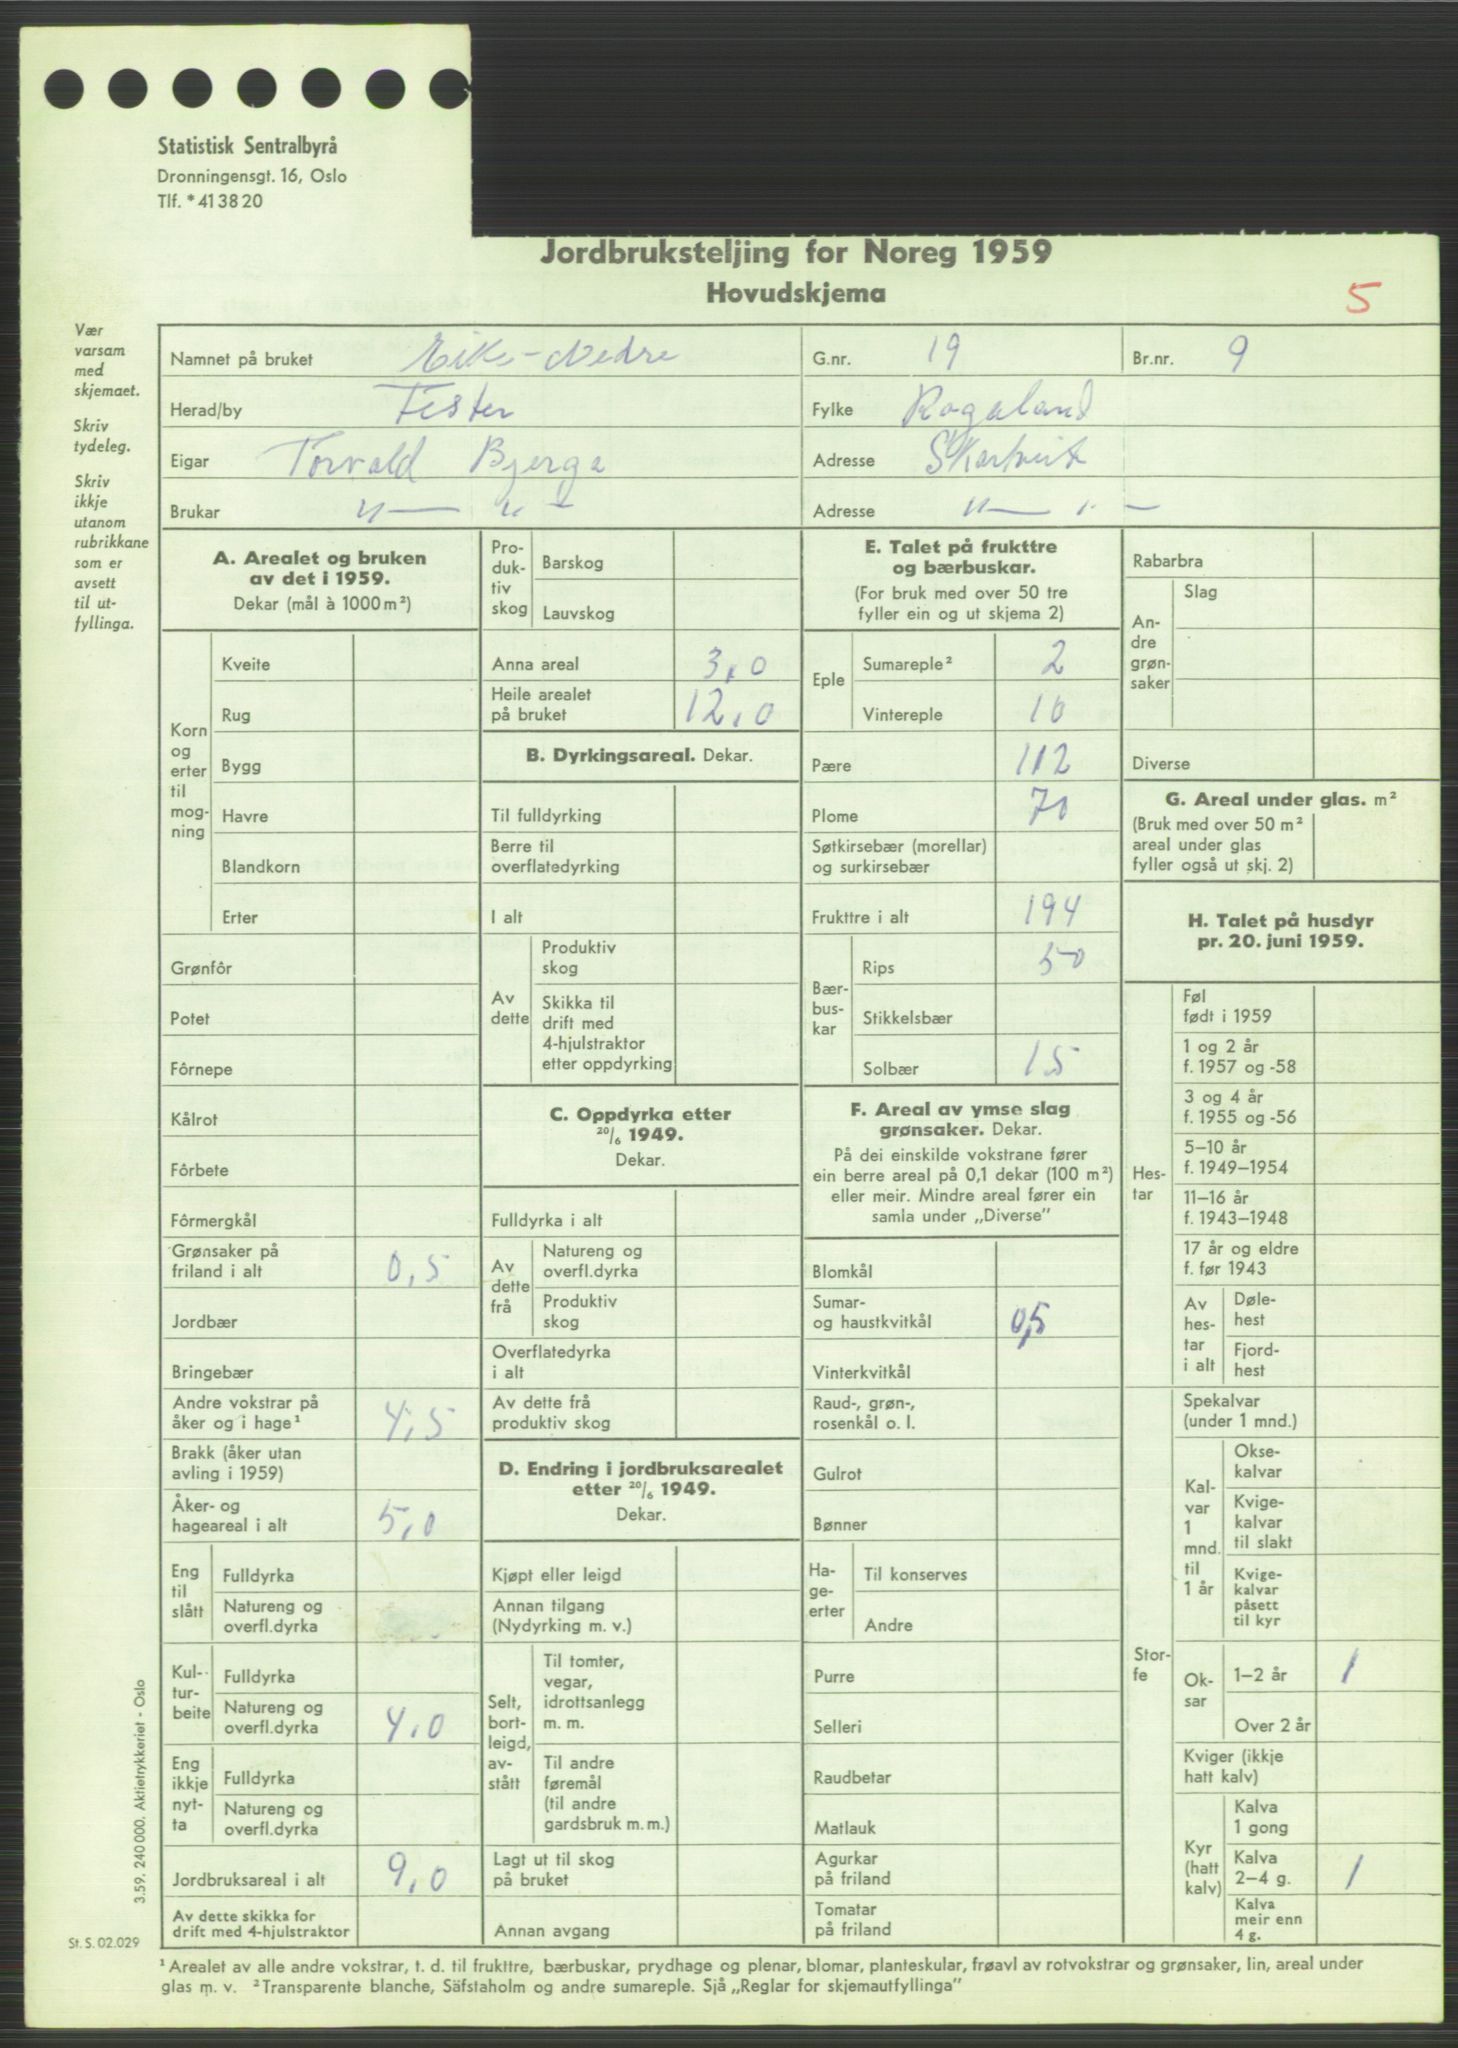 Statistisk Sentralbyrå
Dronningensgt. 16, Oslo
Tlf. *41 38 20
Jordbruksteljing for Noreg 1959
Hovudskjema
5
Vær
varsam
med
skjemaet.
Skriv
tydeleg.
Skriv
ikkje
utanom
rubrikkane
som er
avsett
til ut-
fyllinga.
Namnet på bruket Eike-Nedre G.nr. 19 Br.nr. 9
Herad/by Fister Fylke Rogaland
Eigar Torvald Bjerga Adresse Skartveit
Brukar —"— "— Adresse —"— "—
A. Arealet og bruken
av det i 1959.
Dekar (mål à 1000 m²)
Korn
og
erter
til
mog-
ning
Kveite
Rug
Bygg
Havre
Blandkorn
Erter
Grønfôr
Potet
Fôrnepe
Kålrot
Fôrbete
Fôrmergkål
Grønsaker på
friland i alt 0,5
Jordbær
Bringebær
Andre vokstrar på
åker og i hage¹ 4,5
Brakk (åker utan
avling i 1959)
Åker- og
hageareal i alt 5,0
Eng
til
slått
Fulldyrka
Natureng og
overfl.dyrka
Kul-
tur-
beite
Fulldyrka
Natureng og
overfl.dyrka 4,0
Eng
ikkje
nyt-
ta
Fulldyrka
Natureng og
overfl.dyrka
Jordbruksareal i alt 9,0
Av dette skikka for
drift med 4-hjulstraktor
Pro-
duk-
tiv
skog
Barskog
Lauvskog
Anna areal 3,0
Heile arealet
på bruket 12,0
B. Dyrkingsareal. Dekar.
Til fulldyrking
Berre til
overflatedyrking
I alt
Av
dette
Produktiv
skog
Skikka til
drift med
4-hjulstraktor
etter oppdyrking
C. Oppdyrka etter
20/6 1949.
Dekar.
Fulldyrka i alt
Av
dette
frå
Natureng og
overfl.dyrka
Produktiv
skog
Overflatedyrka
i alt
Av dette frå
produktiv skog
D. Endring i jordbruksarealet
etter 20/6 1949.
Dekar.
Kjøpt eller leigd
Annan tilgang
(Nydyrking m. v.)
Selt,
bort-
leigd,
av-
stått
Til tomter,
vegar,
idrottsanlegg
m. m.
Til andre
føremål
(til andre
gardsbruk m. m.)
Lagt ut til skog
på bruket
Annan avgang
E. Talet på frukttre
og bærbuskar.
(For bruk med over 50 tre
fyller ein og ut skjema 2)
Eple
Sumareple² 2
Vintereple 10
Pære 112
Plome 70
Søtkirsebær (morellar)
og surkirsebær
Frukttre i alt 194
Bær-
bus-
kar
Rips 50
Stikkelsbær
Solbær 15
F. Areal av ymse slag
grønsaker. Dekar.
På dei einskilde vokstrane fører
ein berre areal på 0,1 dekar (100 m²)
eller meir. Mindre areal fører ein
samla under „Diverse”
Blomkål
Sumar-
og haustkvitkål 0,5
Vinterkvitkål
Raud-, grøn-,
rosenkål o. l.
Gulrot
Bønner
Ha-
ge-
erter
Til konserves
Andre
Purre
Selleri
Raudbetar
Matlauk
Agurkar
på friland
Tomatar
på friland
Rabarbra
An-
dre
grøn-
saker
Slag
Diverse
G. Areal under glas. m²
(Bruk med over 50 m²
areal under glas
fyller også ut skj. 2)
H. Talet på husdyr
pr. 20. juni 1959.
Hes-
tar
Føl
født i 1959
1 og 2 år
f. 1957 og -58
3 og 4 år
f. 1955 og -56
5–10 år
f. 1949–1954
11–16 år
f. 1943–1948
17 år og eldre
f. før 1943
Av
hes-
tar
i alt
Døle-
hest
Fjord-
hest
Stor-
fe
Spekalvar
(under 1 mnd.)
Kal-
var
1
mnd.
til
1 år
Okse-
kalvar
Kvige-
kalvar
til slakt
Kvige-
kalvar
påsett
til kyr
Ok-
sar
1–2 år 1
Over 2 år
Kviger (ikkje
hatt kalv)
Kyr
(hatt
kalv)
Kalva
1 gong
Kalva
2–4 g. 1
Kalva
meir enn
4 g.
3.59. 240 000. Aktietrykkeriet - Oslo
St. S. 02.029
¹ Arealet av alle andre vokstrar, t. d. til frukttre, bærbuskar, prydhage og plenar, blomar, planteskular, frøavl av rotvokstrar og grønsaker, lin, areal under
glas m. v. ² Transparente blanche, Säfstaholm og andre sumareple. Sjå „Reglar for skjemautfyllinga”